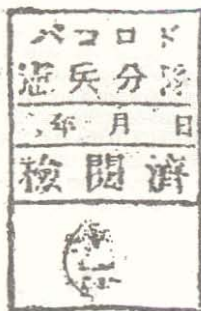 バコロド
憲兵分隊
年 月 日
檢閲濟